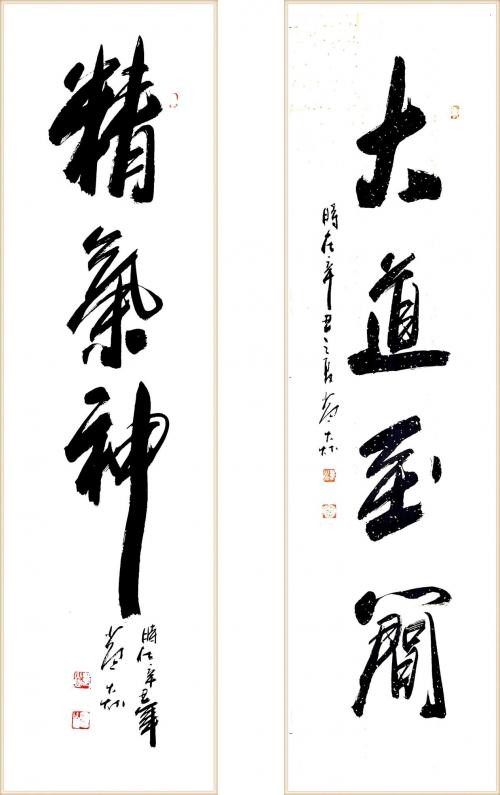 大道至簡
時在辛丑之夏
精氣神
時在辛丑年